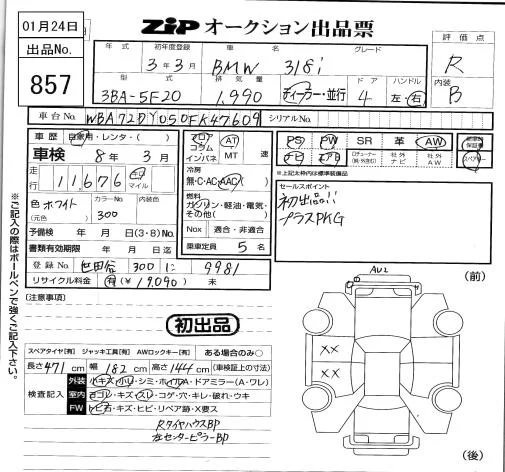 01月24日
出品No.
857
ZIP オークション出品票
年式 初年度登録 車名 グレード
3年3月 BMW 318i
型式 排気量 ドア ハンドル
3BA-5F20 1,990 ディーラー・並行 4 左・右
評価点
R
内装
B
車台No. WBA72DY050FK47609 シリアルNo.
車歴 自家用・レンタ・( )
車検 8年3月
走行 11,676 キロ マイル
色 ホワイト カラーNo. 300 内装色
(元色)
予備検 年 月 日(3・8)No.
書類有効期限 年 月 日迄
フロア コラム インパネ AT MT 速
冷房
無・C・AC・AAC( )
燃料
ガソリン・軽油・電気・その他( )
Nox 適合・非適合
乗車定員 5名
PS PW SR 革 AW
ナビ エアB 社外ナビ 社外AW
保証書
スペアキー
※上記太枠内は標準装備品
セールスポイント
初出品!!
プラスPKG
登録No. 世田谷 300 に 9981
リサイクル料金 有(¥17,090) 未
(注意事項)
初出品
スペアタイヤ[有] ジャッキ工具[有] AWロックキー[有] ある場合のみ○
長さ471cm 幅182cm 高さ144cm (車検証上の寸法)
検査記入
外装 小キズ・小凹・シミ・ホイルA・ドアミラー(A・ワレ)
室内 ヨゴレ・キズ・スレ・コゲ・穴・キレ・破れ・ウキ
FW トビ石・キズ・ヒビ・リペア跡・X要ス
RタイヤハウスBP
左センターピラーBP
AU2
(前)
XX
XX
(後)
※ご記入の際はボールペンで強くご記入下さい。